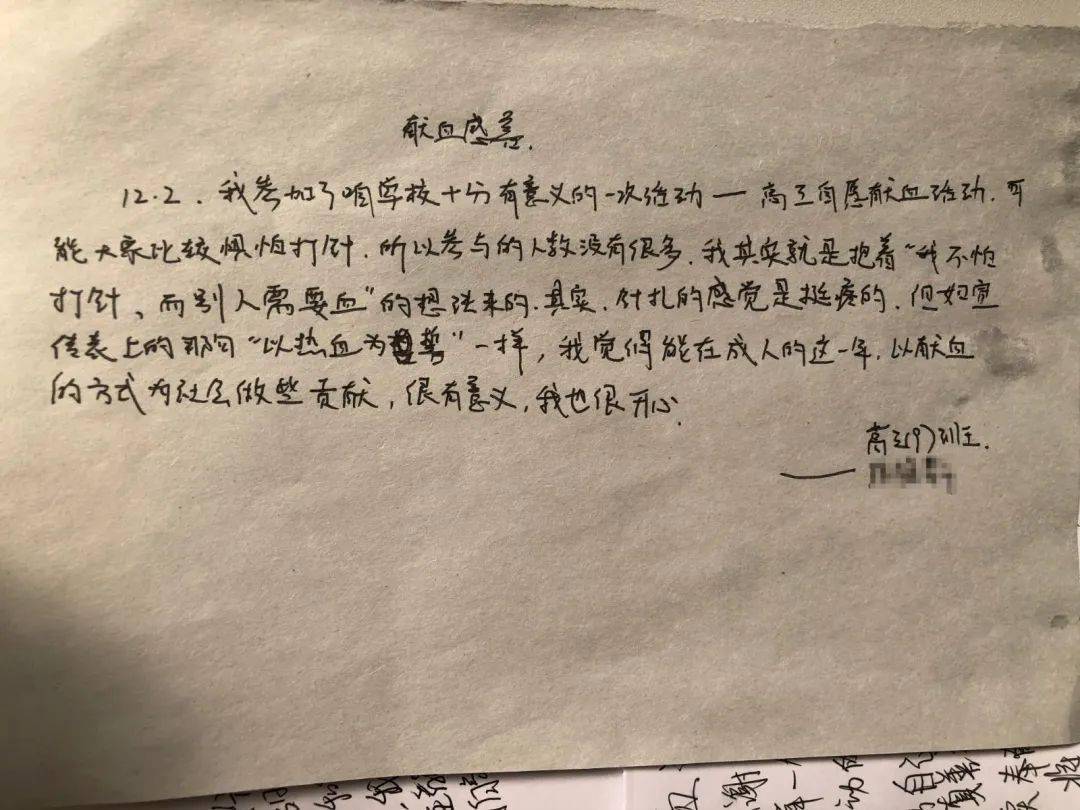 献血感善.
12.2. 我参加了咱学校十分有意义的一次活动 — 高三自愿献血活动. 可
能大家比较惧怕打针. 所以参与的人数没有很多. 我其实就是抱着“我不怕
打针、而别人需要血”的想法来的. 其实. 针扎的感觉是挺疼的. 但如宣
传表上的那句“以热血为誓”一样, 我觉得能在成人的这一年. 以献血
的方式为社会做些贡献, 很有意义, 我也很开心.
高三(9)班.
谢